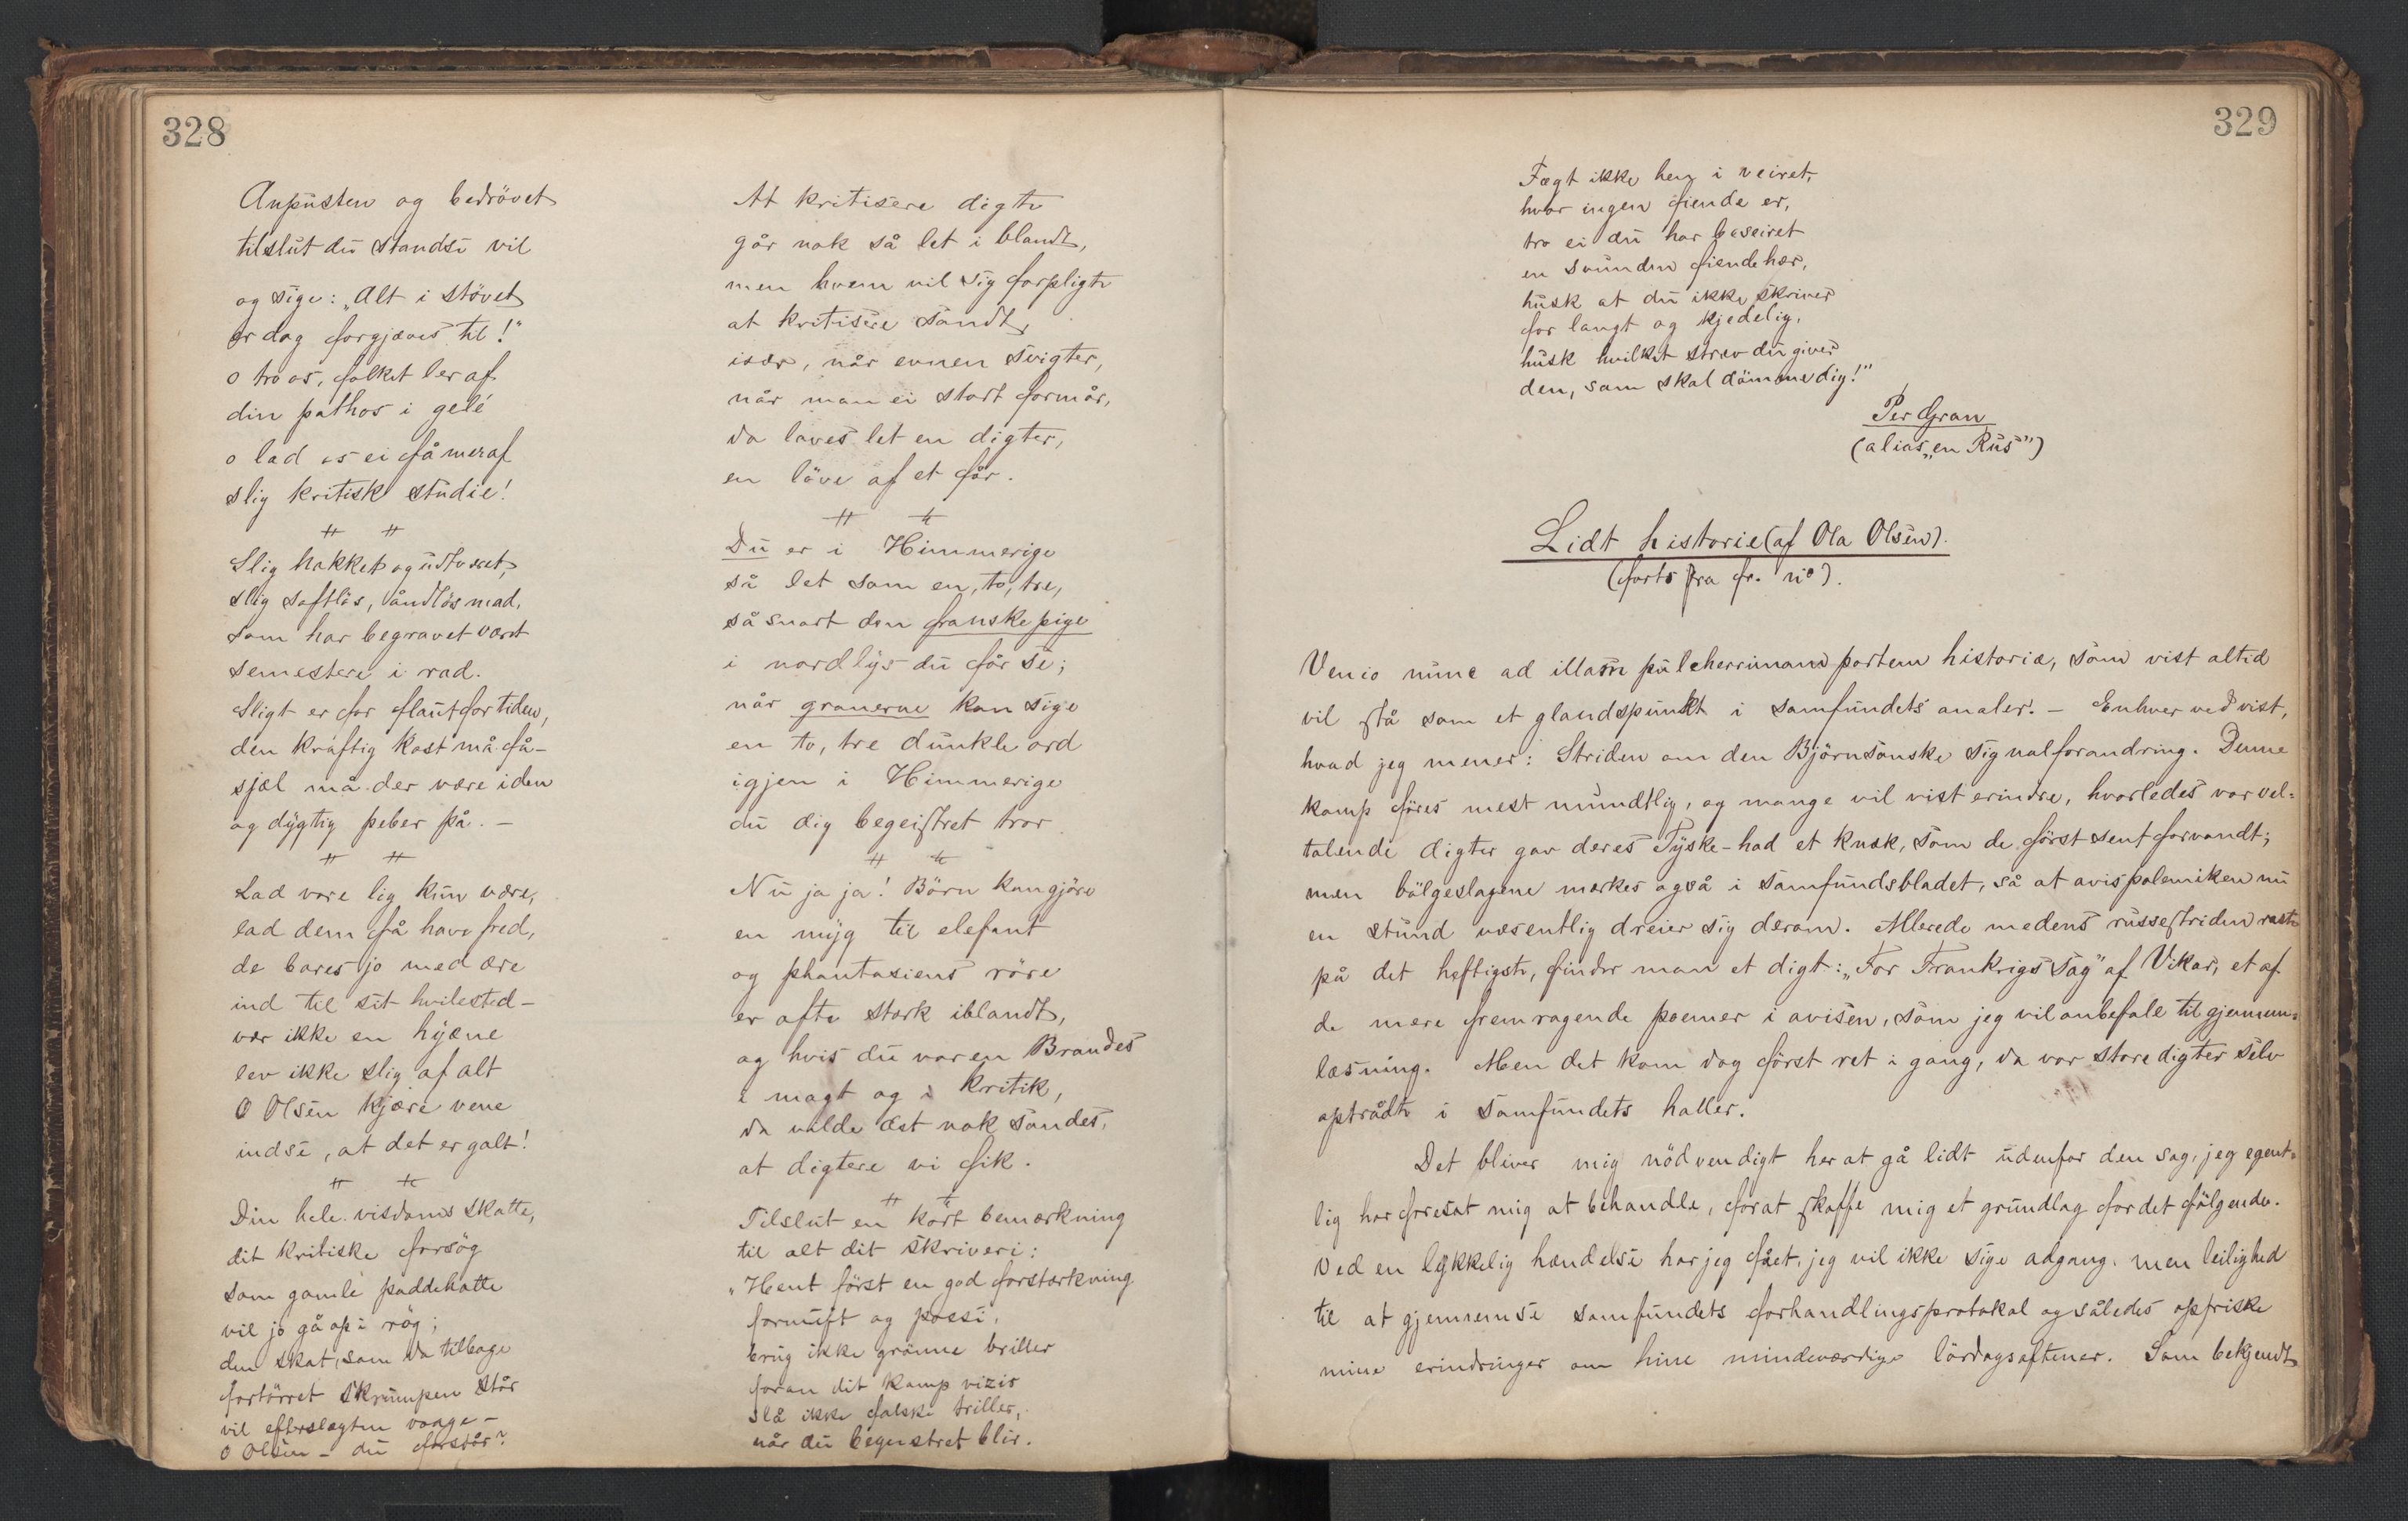 328
Anpusten og bedrövet
tilslut du standse vil
og sige: „Alt i stövet
er dog forgjæves til!"
o tro os, folket ler af
din pathos i gelé
o lad os ei få mer af
slig kritisk studie!
# #
Slig hakket og udtværet,
slig saftlös, åndlös mad,
som har begravet været
semestere i rad.
Sligt er for flaut for tiden,
den kraftig kost må få –
sjæl må der være i den
og dygtig peber på. –
# #
Lad vore lig kun være,
lad dem få have fred,
de bares jo med ære
ind til sit hvilested –
vær ikke en hyæne
lev ikke slig af alt
O Olsen kjære vene
indse, at det er galt!
# #
Din hele visdoms skatte,
dit kritiske forsög
som gamle paddehatte
vil jo gå op i rög;
den skat, som da tilbage
fortörret skrumpen står
vil efterslægten vrage –
O Olsen – du forstår?
At kritisere digte
går nok så let i blandt,
men hvem vil sig forpligte
at kritisere sandt,
især, når evnen svigter,
når man ei stort formår,
da laves let en digter,
en löve af et får.
# #
Du er i Himmerige
så let som en, to, tre,
så snart den franske pige
i nordlys du får se;
når granerne kan sige
en to, tre dunkle ord
igjen i Himmerige
du dig begeistret tror
# #
Nu ja ja! Börn kan gjöre
en myg til elefant
og phantasiens röre
er ofte stærk iblandt,
og hvis du var en Brandes
i magt og i kritik,
da vilde det nok sandes,
at digtere vi fik.
# #
Tilslut en kort bemærkning
til alt dit skriveri:
„Hent först en god forstærkning
fornuft og poesi,
brug ikke grönne briller
foran dit kamp vizir
slå ikke falske triller,
når du begeistret blir.
329
Fægt ikke hen i veiret,
hvor ingen fiende er,
tro ei du har beseiret
en svunden fiendehær,
husk at du ikke skriver
for langt og kjedelig,
husk hvilket stræv du giver
den, som skal dömme dig!"
Per Gran
(alias „en Rus")
Lidt historie (af Ola Olsen).
(forts fra fr. no).
Venio nunc ad illam pulcherrimam partem historiæ, som vist altid
vil stå som et glandspunkt i samfundets analer. – Enhver ved vist,
hvad jeg mener: Striden om den Björnsonske signalforandring. Denne
kamp föres mest mundtlig, og mange vil vist erindre, hvorledes vor vel-
talende digter gav deres Tyske-had et knæk, som de först sent forvandt;
men bölgeslagene mærkes også i samfundsbladet, så at avispolemiken nu
en stund væsentlig dreier sig derom. Allerede medens russestriden raste
på det heftigste, finder man et digt: „For Frankrigs Sag" af Vikar, et af
de mere fremragende poemer i avisen, som jeg vil anbefale til gjennem-
læsning. Men det kom dog först ret i gang, da vor store digter selv
optrådte i samfundets haller.
Det bliver mig nödvendigt her at gå lidt udenfor den sag, jeg egent-
lig har foresat mig at behandle, forat skaffe mig et grundlag for det fölgende.
Ved en lykkelig hændelse har jeg fået, jeg vil ikke sige adgang, men leilighed
til at gjennemse samfundets forhandlingsprotokol og således opfriske
mine erindringer om hine mindeværdige lördagsaftener. Som bekjendt